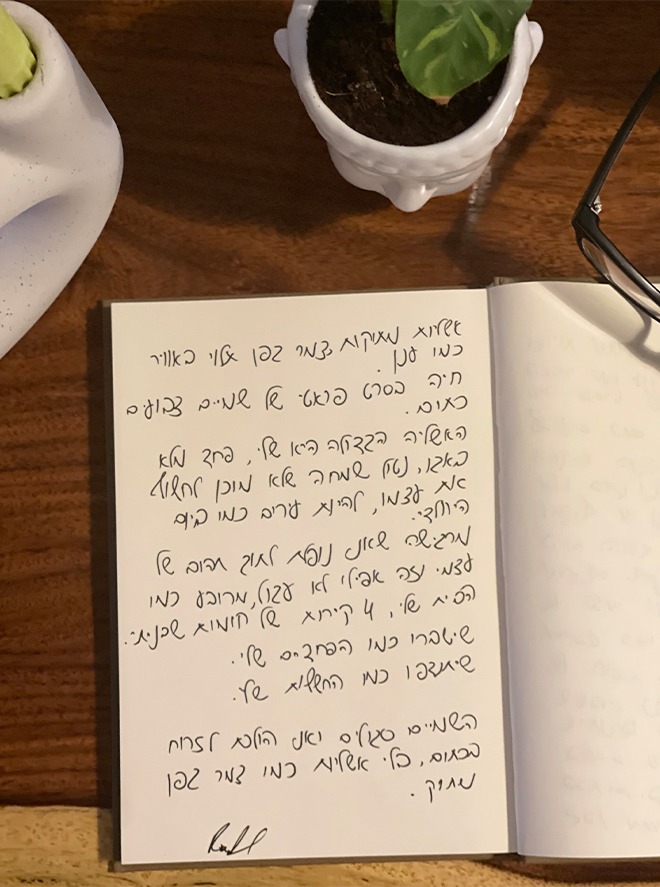 אשליות מתוקות, צמר גפן תלוי באוויר
כמו ענן.
חיה בסרט פראטי של שמיים צבועים
כתום.
האשליה הגדולה היא שלי, פחד מלא
באגו, נטול שמחה שלא מוכן לחשוף
את עצמו, להיות ערים כמו ביום
היולדי.
מרגישה שאני נופלת לתוך תהום של
עצמי וזה אפילו לא עגול, מרובע כמו
הבית שלי, 4 קירות של חומות שבניתי.
שישברו כמו הפחדים שלי.
שיתנדפו כמו החששות שלי.
השמיים סגולים ואני הולכת לזרוח
בכתום, בלי אשליות כמו צמר גפן
מתוק.